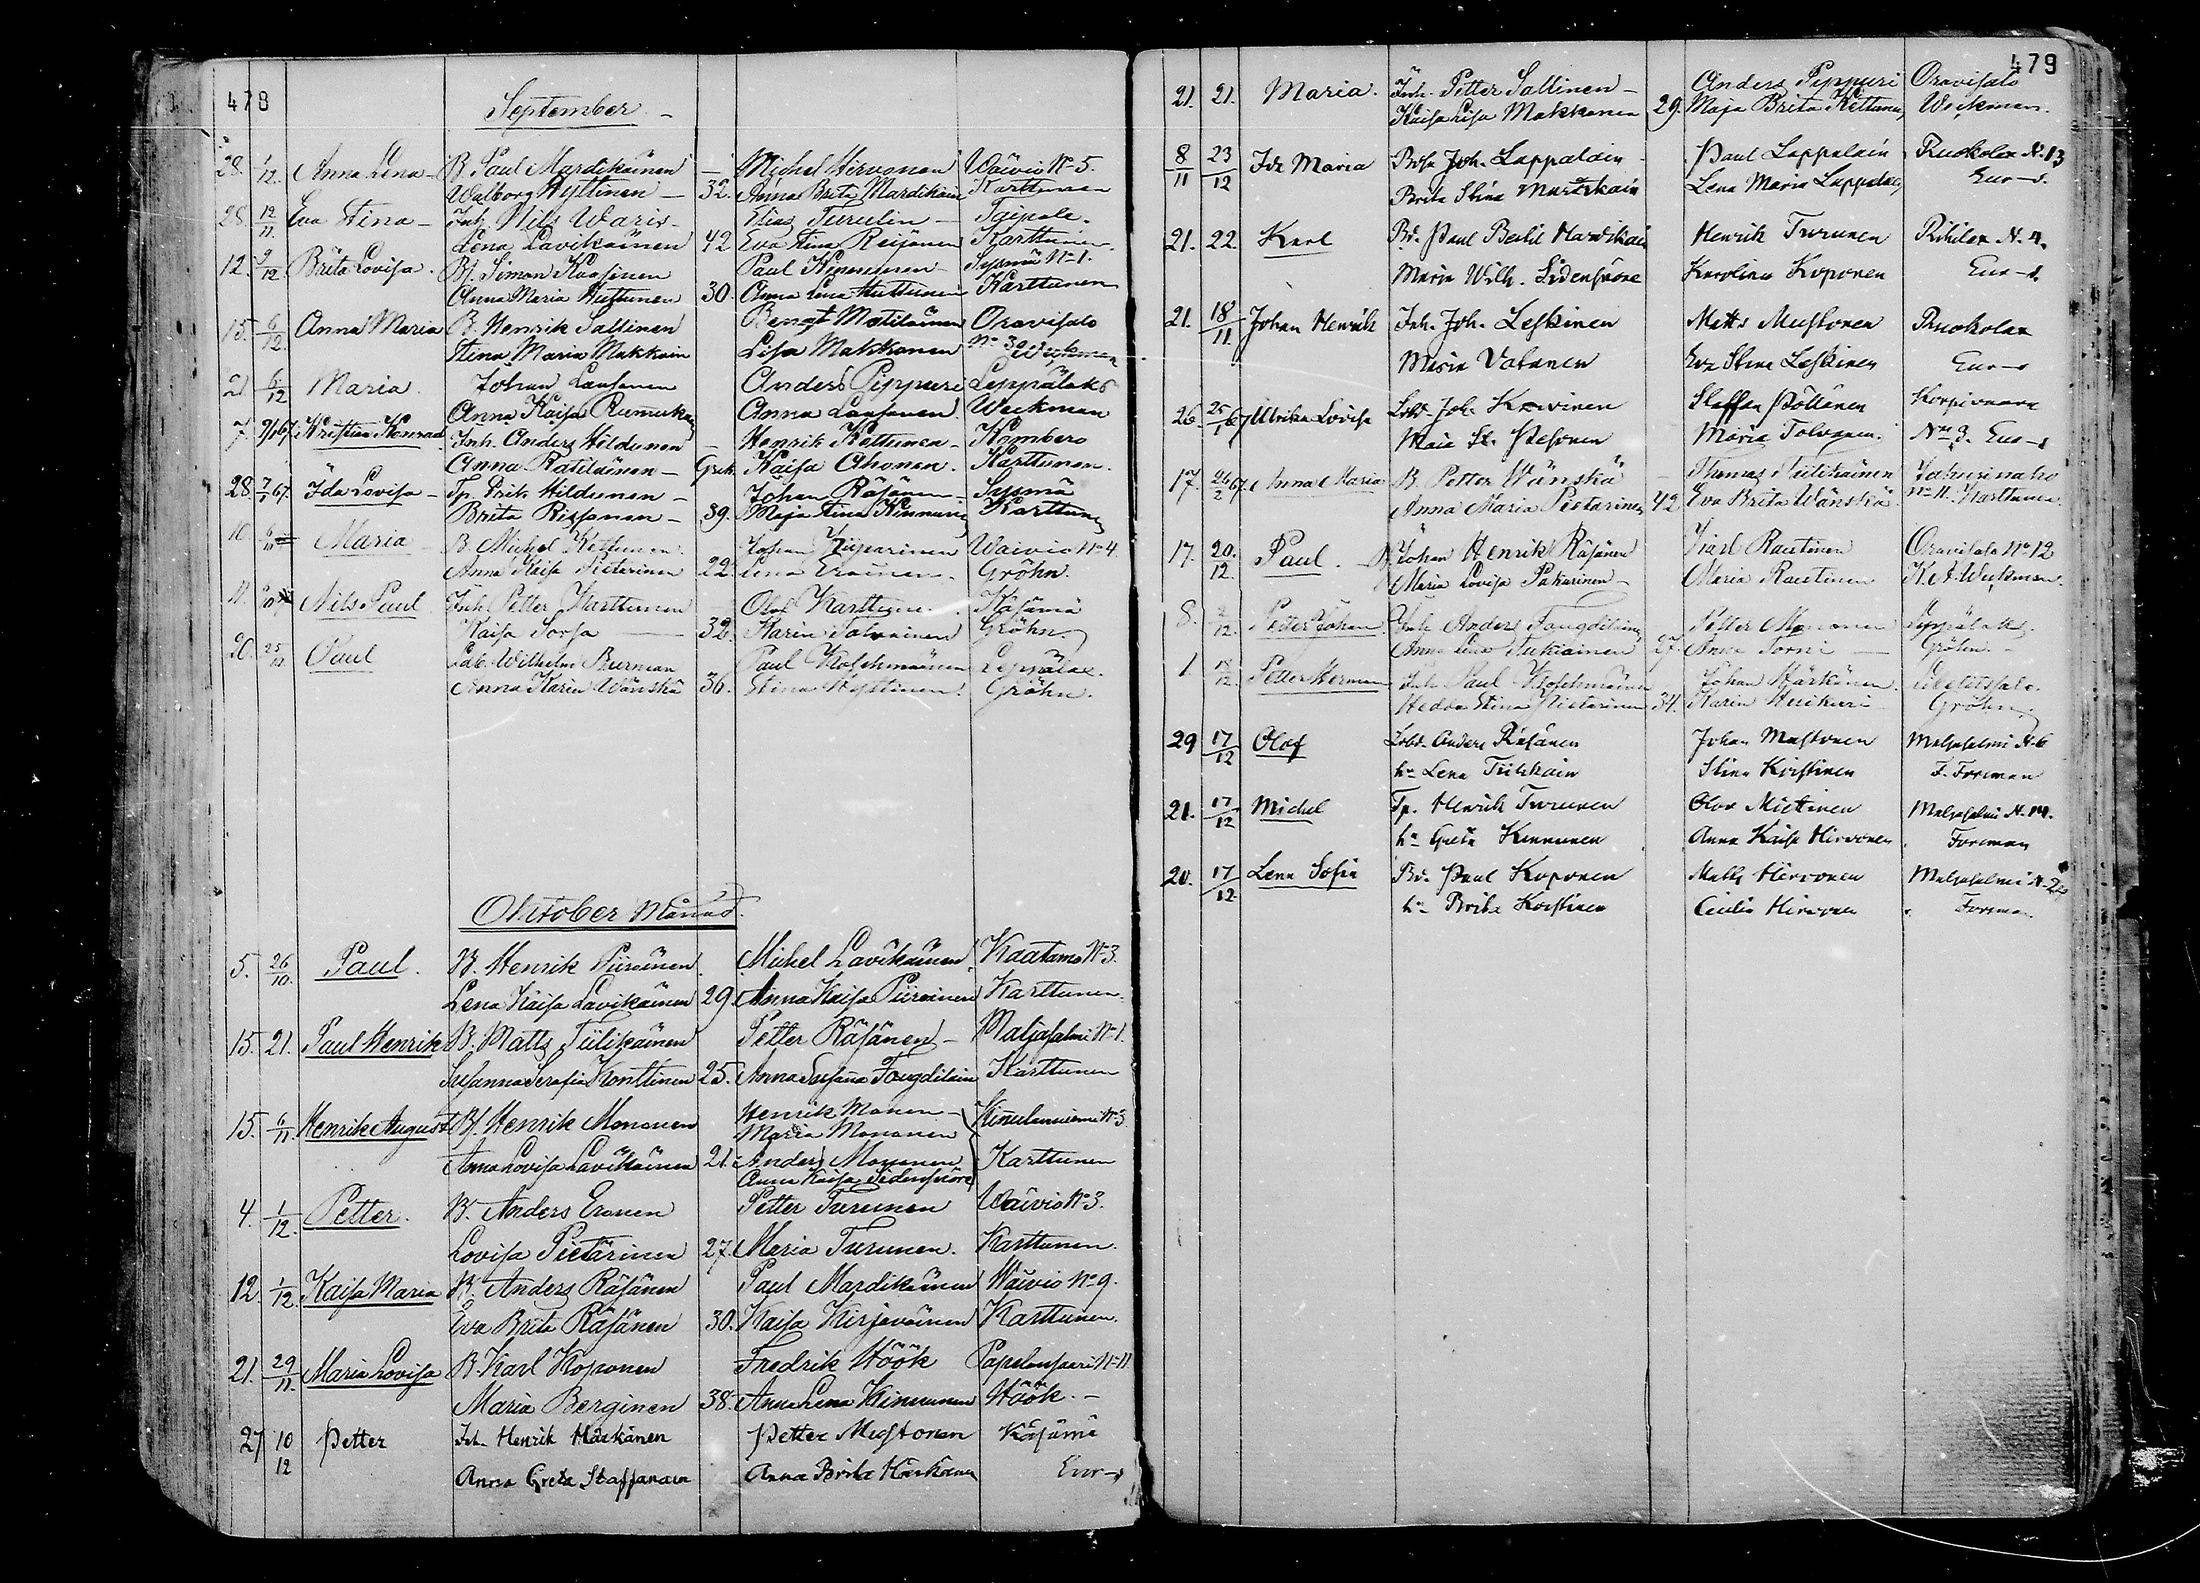 478
September.
28. 1/12. Anna Lena B. Paul Mardikainen — Michel Hirvonen Waivio No 5.
Walborg Hyttinen — 32. Anna Brita Mardikain Karttunen
28. 12/11. Eva Stina Inh. Nils Waris Elias Turulin Taipale.
Lena Lavikainen 42 Eva Stina Reijonen Karttunen.
12. 9/12. Brita Lovisa. Bf. Simon Kaasinen Paul Sysmä No 1.
Anna Maria Huttunen 30. Anna Lena Huttunen Karttunen
15. 6/12. Anna Maria B. Henrik Sallinen Bengt Matilainen Oravisalo
Stina Maria Makkoin Lisa Makkonen No 30 Wickman
21 6/12 Maria. Johan Laasonen Anders Pippuri Leppälaks
Anna Kaisa Anna Laasonen Weckman
7. Kristian Konrad Inh. Anders Hildunen — Henrik Kettunen Homberg
Anna Ratilainen — Grek. Kaisa Ahonen. Karttunen.
28. 7/1 67. Ida Lovisa Tp. Erik Hildunen — Johan Räsänen Sysmä
Brita Rissanen — 39. Maja Stina Kinnunen Karttunen
10. Maria B. Michel Kettunen. Johan Waivio No 4.
Anna Kaisa Pietarinen 22. Lena Eroinen. Gröhn.
11. Nils Paul Inh. Petter Karttunen — Olof Karttunen. Käsämä
Kaisa Sorsa — 32. Karin Tolvainen Gröhn
20. 25/11 Paul Lab. Wilhelm Burman Paul Koschmainen Leppälax.
Anna Karin Wänskä 36. Stina Hyttinen. Gröhn.
Oktober Månad.
5. 26/10. Paul. B. Henrik Piiroinen Michel Lavikainen Kaatamo No 3.
Lena Kaisa Lavikainen 29. Anna Kaisa Piiroinen Karttunen.
15. 21. Paul Henrik B. Matts Tiilikainen Petter Räsänen — Maljasalmi No 1.
Susanna Serafia Konttinen 25. Anna Susanna Fougdilain Karttunen
15. 6/11. Henrik August Bf. Henrik Mononen Henrik Monen — No 3
Maria Mononen
Anna Lovisa Lavikainen 21. Anders Mononen Karttunen
Anna Kaisa Sidensnöre
4. 1/12. Petter. B. Anders Eronen Petter Turunen Waivio No 3.
Lovisa Pietarinen 27. Maria Turunen. Karttunen.
12. 1/12. Kaisa Maria B. Anders Räsänen Paul Mardikainen Waivio No 9.
Eva Brita Räsänen 30. Kaisa Kirjavainen Karttunen.
21. 29/11. Maria Lovisa B. Karl Koponen Fredrik Höök Papelonsaari No 11
Maria Berginen 38. Anna Lena Kinnunen Höök. —
27 10/12 Petter Inh. Henrik Härkänen Petter Mustonen Käsämä
Anna Greta Staffanain Anna Brita Härkänen
479
21. 21. Maria. Inh. Petter Sallinen — Anders Pippuri Oravisalo
Kaisa Lisa Makkonen 29. Maja Brita Kettunen Weckman.
8/11 23/12 Ida Maria Bdsn Joh. Lappalain Paul Lappalain Ruokolax N. 13
Brita Stina Mardikain Lena Maria Lappalai
21. 22. Karl Bd. Paul Bertil Mardikain Henrik Turunen Rihilax N. 4.
Maria Wilh. Sidensnöre Karolina Koponen
21. 18/11 Johan Henrik Inh. Joh. Leskinen Matts Mustonen Ruokolax
Maria Vatanen Eva Stina Leskinen
26. 25/1 67 Ulrika Lovisa Lbd. Joh. Korvinen Staffan Pöllänen Korpivaara
Maia St. Pesonen Maria Tolvanen. No 9.
17. 26/2 67. Anna Maria B. Petter Wänskä — Thomas Tiilikainen
Anna Maria Pietarinen 42 Eva Brita Wänskä No 11. Karttunen
17. 20./12. Paul. Johan Henrik Räsänen Karl Rautinen Oravisalo No 12
Maria Lovisa Pakarinen — Maria Rautinen K. A. Weckman.
8. Petter Johan Inh. Anders Fougdilain Petter Mononen Leppälaks.
Anna Lisa Tiukiainen 27. Anna Torni — Gröhn.
1. 18/12. Petter Herman Inh. Paul Koschmainen Johan Härkönen.
Hedda Stina Pietarinen 34. Karin Huikuri Gröhn
29 17/12 Olof Lbd. Anders Räsänen Johan Mustonen Maljasalmi N. 6
hu Lena Tiihkain Stina Korstinen F. Forsman
21. 17/12 Michel Tp. Henrik Turunen Olov Miettinen Maljasalmi N. 14.
hu Greta Kinnunen Anna Kaisa Hirvonen Forsman
20. 17/12. Lena Sofia Bd. Paul Koponen Matts Hirvonen Maljasalmi N.
hu Brita Korstinen Cecilia Hirvonen Forsman